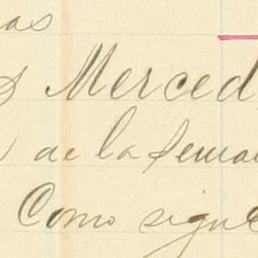 as
Merced
de la Semа
Como sigue